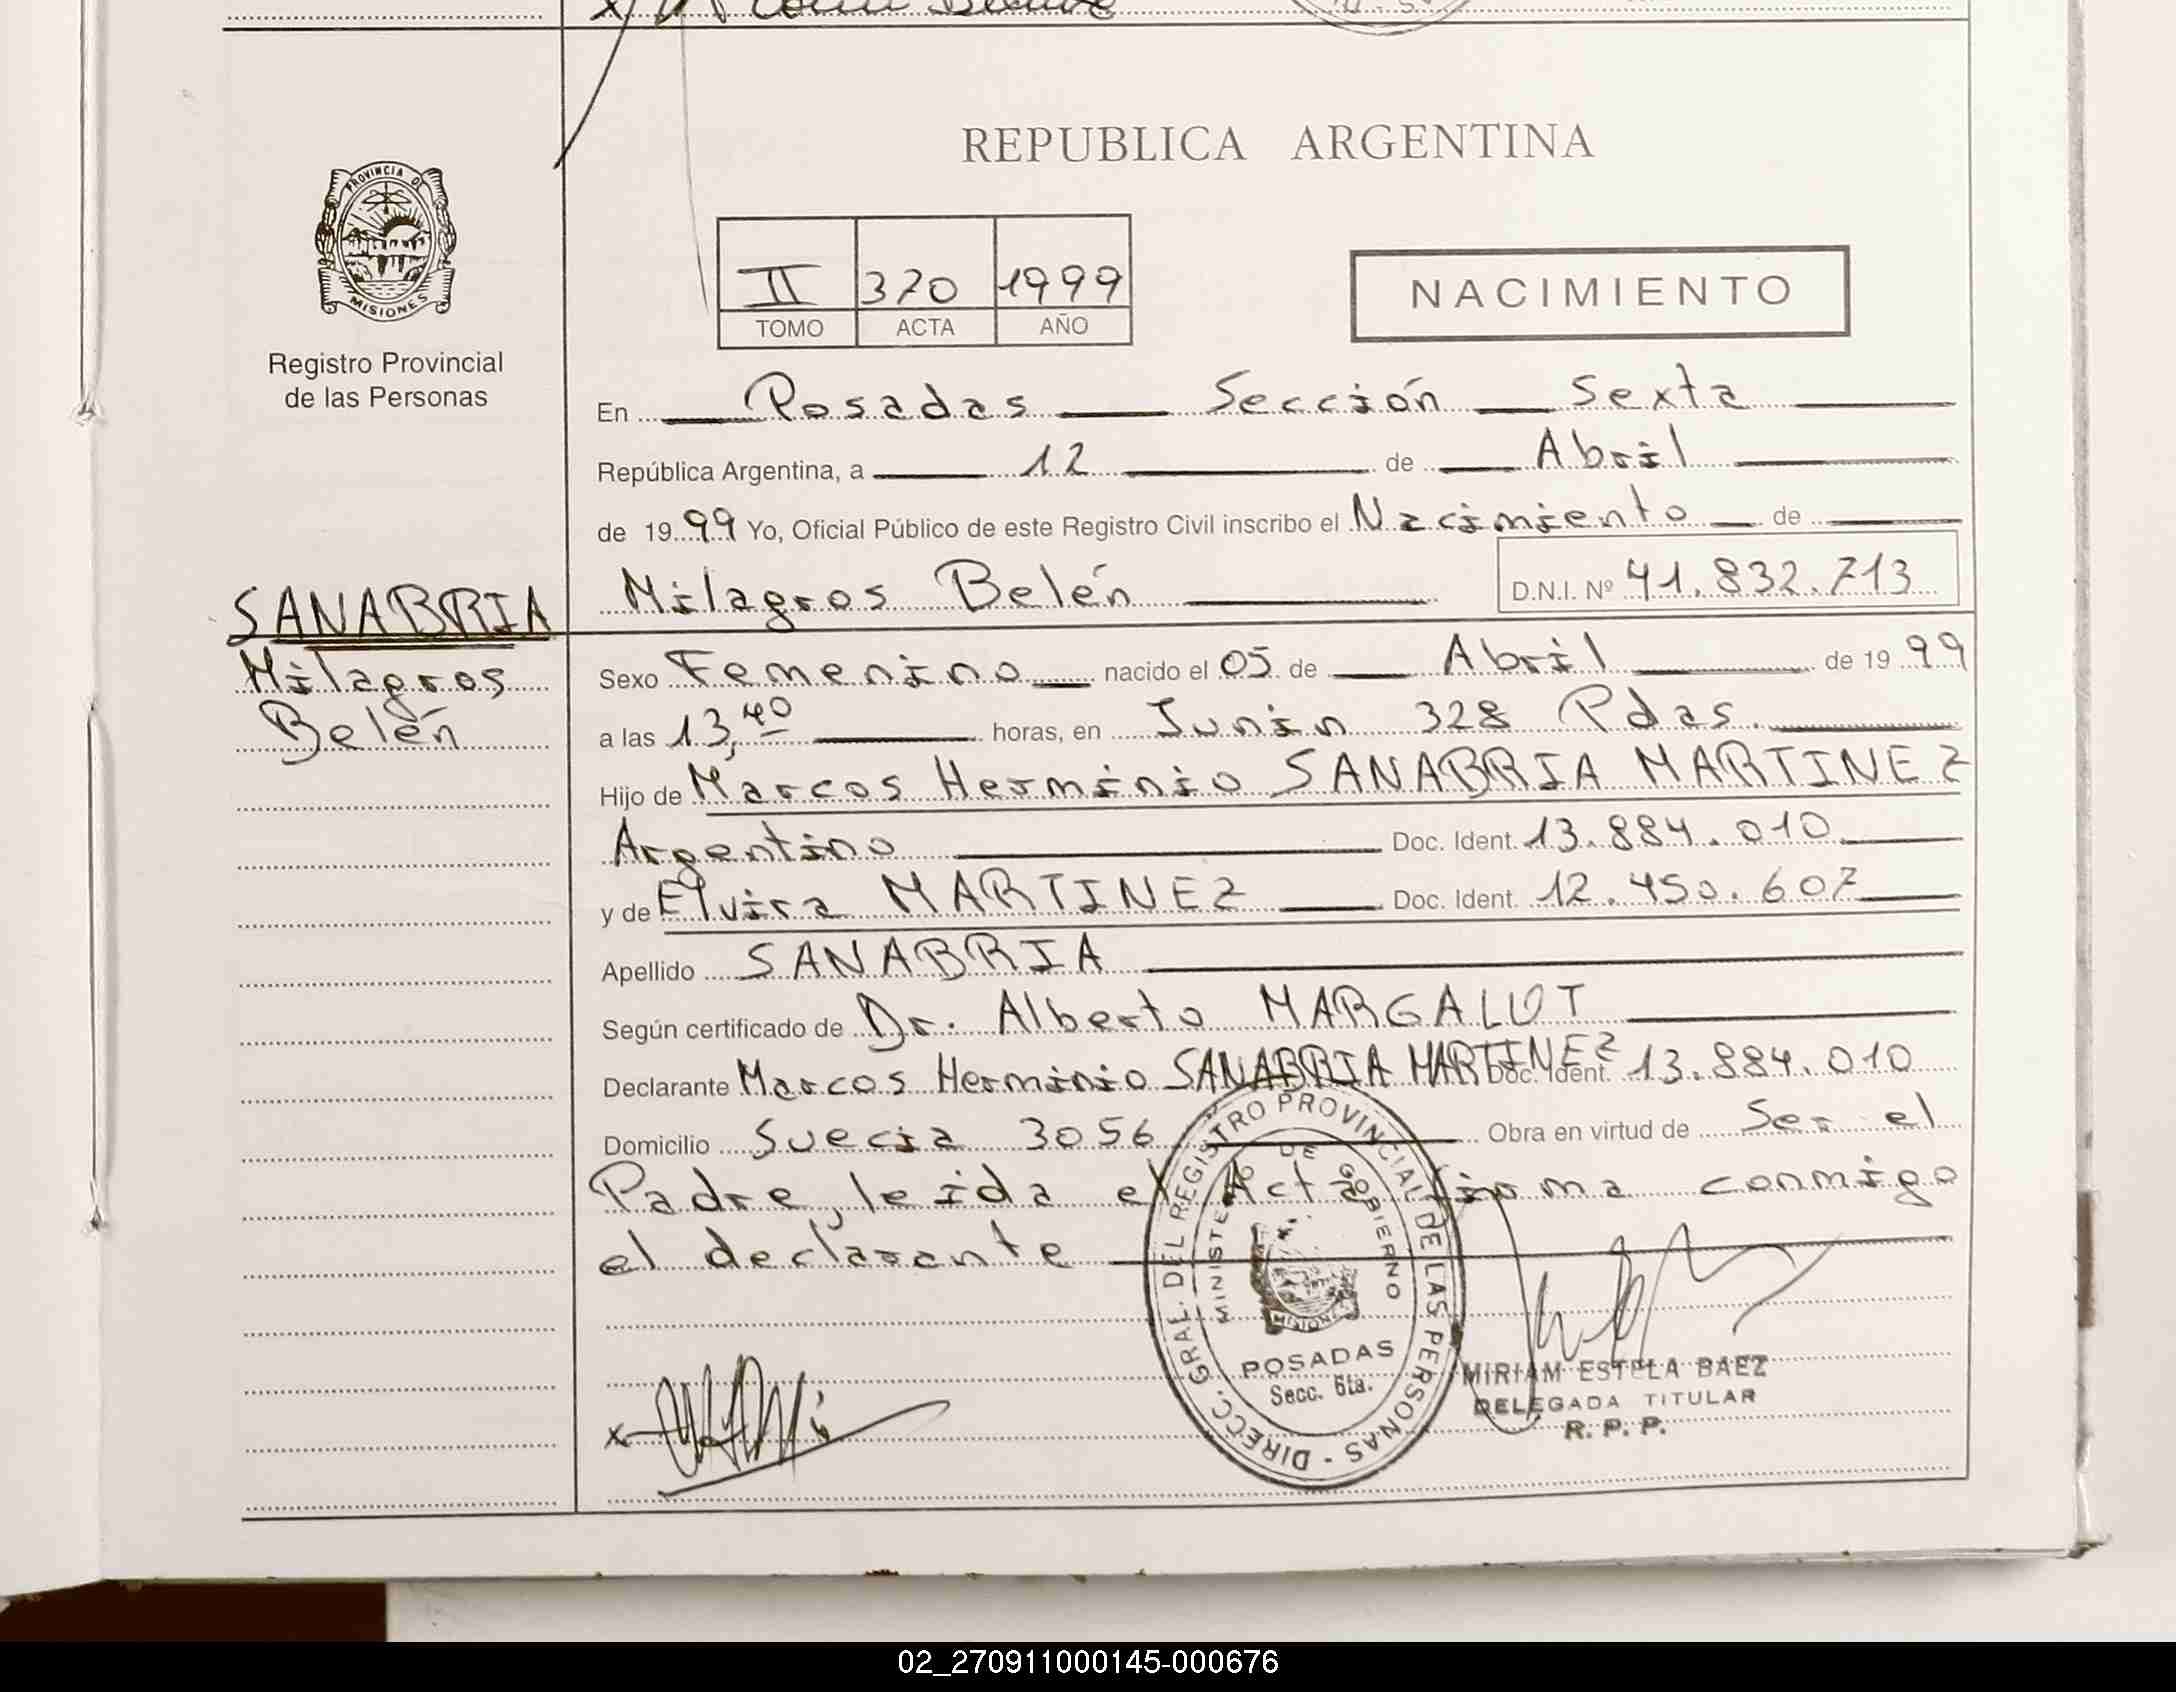 REPUBLICA ARGENTINA
PROVINCIA D
MISIONES
Registro Provincial
de las Personas
II 370 1999
TOMO ACTA AÑO
NACIMIENTO
En Posadas Sección Sexta
República Argentina, a 12 de Abril
de 1999 Yo, Oficial Público de este Registro Civil inscribo el Nacimiento de
Milagros Belén D.N.I. Nº 41.832.713
SANABRIA
Milagros
Belén
Sexo Femenino nacido el 05 de Abril de 1999
a las 13,40 horas, en Junin 328 Pdas.
Hijo de Marcos Herminio SANABRIA MARTINEZ
Argentino Doc. Ident. 13.884.010
y de Elvira MARTINEZ Doc. Ident. 12.450.607
Apellido SANABRIA
Según certificado de Dr. Alberto MARGALOT
Declarante Marcos Herminio SANABRIA MARTINEZ Doc. Ident. 13.884.010
Domicilio Suecia 3056 Obra en virtud de Ser el
Padre, leida el Acta firma conmigo
el declarante
DIRECC. GRAL. DEL REGISTRO PROVINCIAL DE LAS PERSONAS -
MINISTE DE GOBIERNO
MISIONES
POSADAS
Secc. 6ta.
MIRIAM ESTELA BAEZ
DELEGADA TITULAR
R. P. P.
02_270911000145-000676